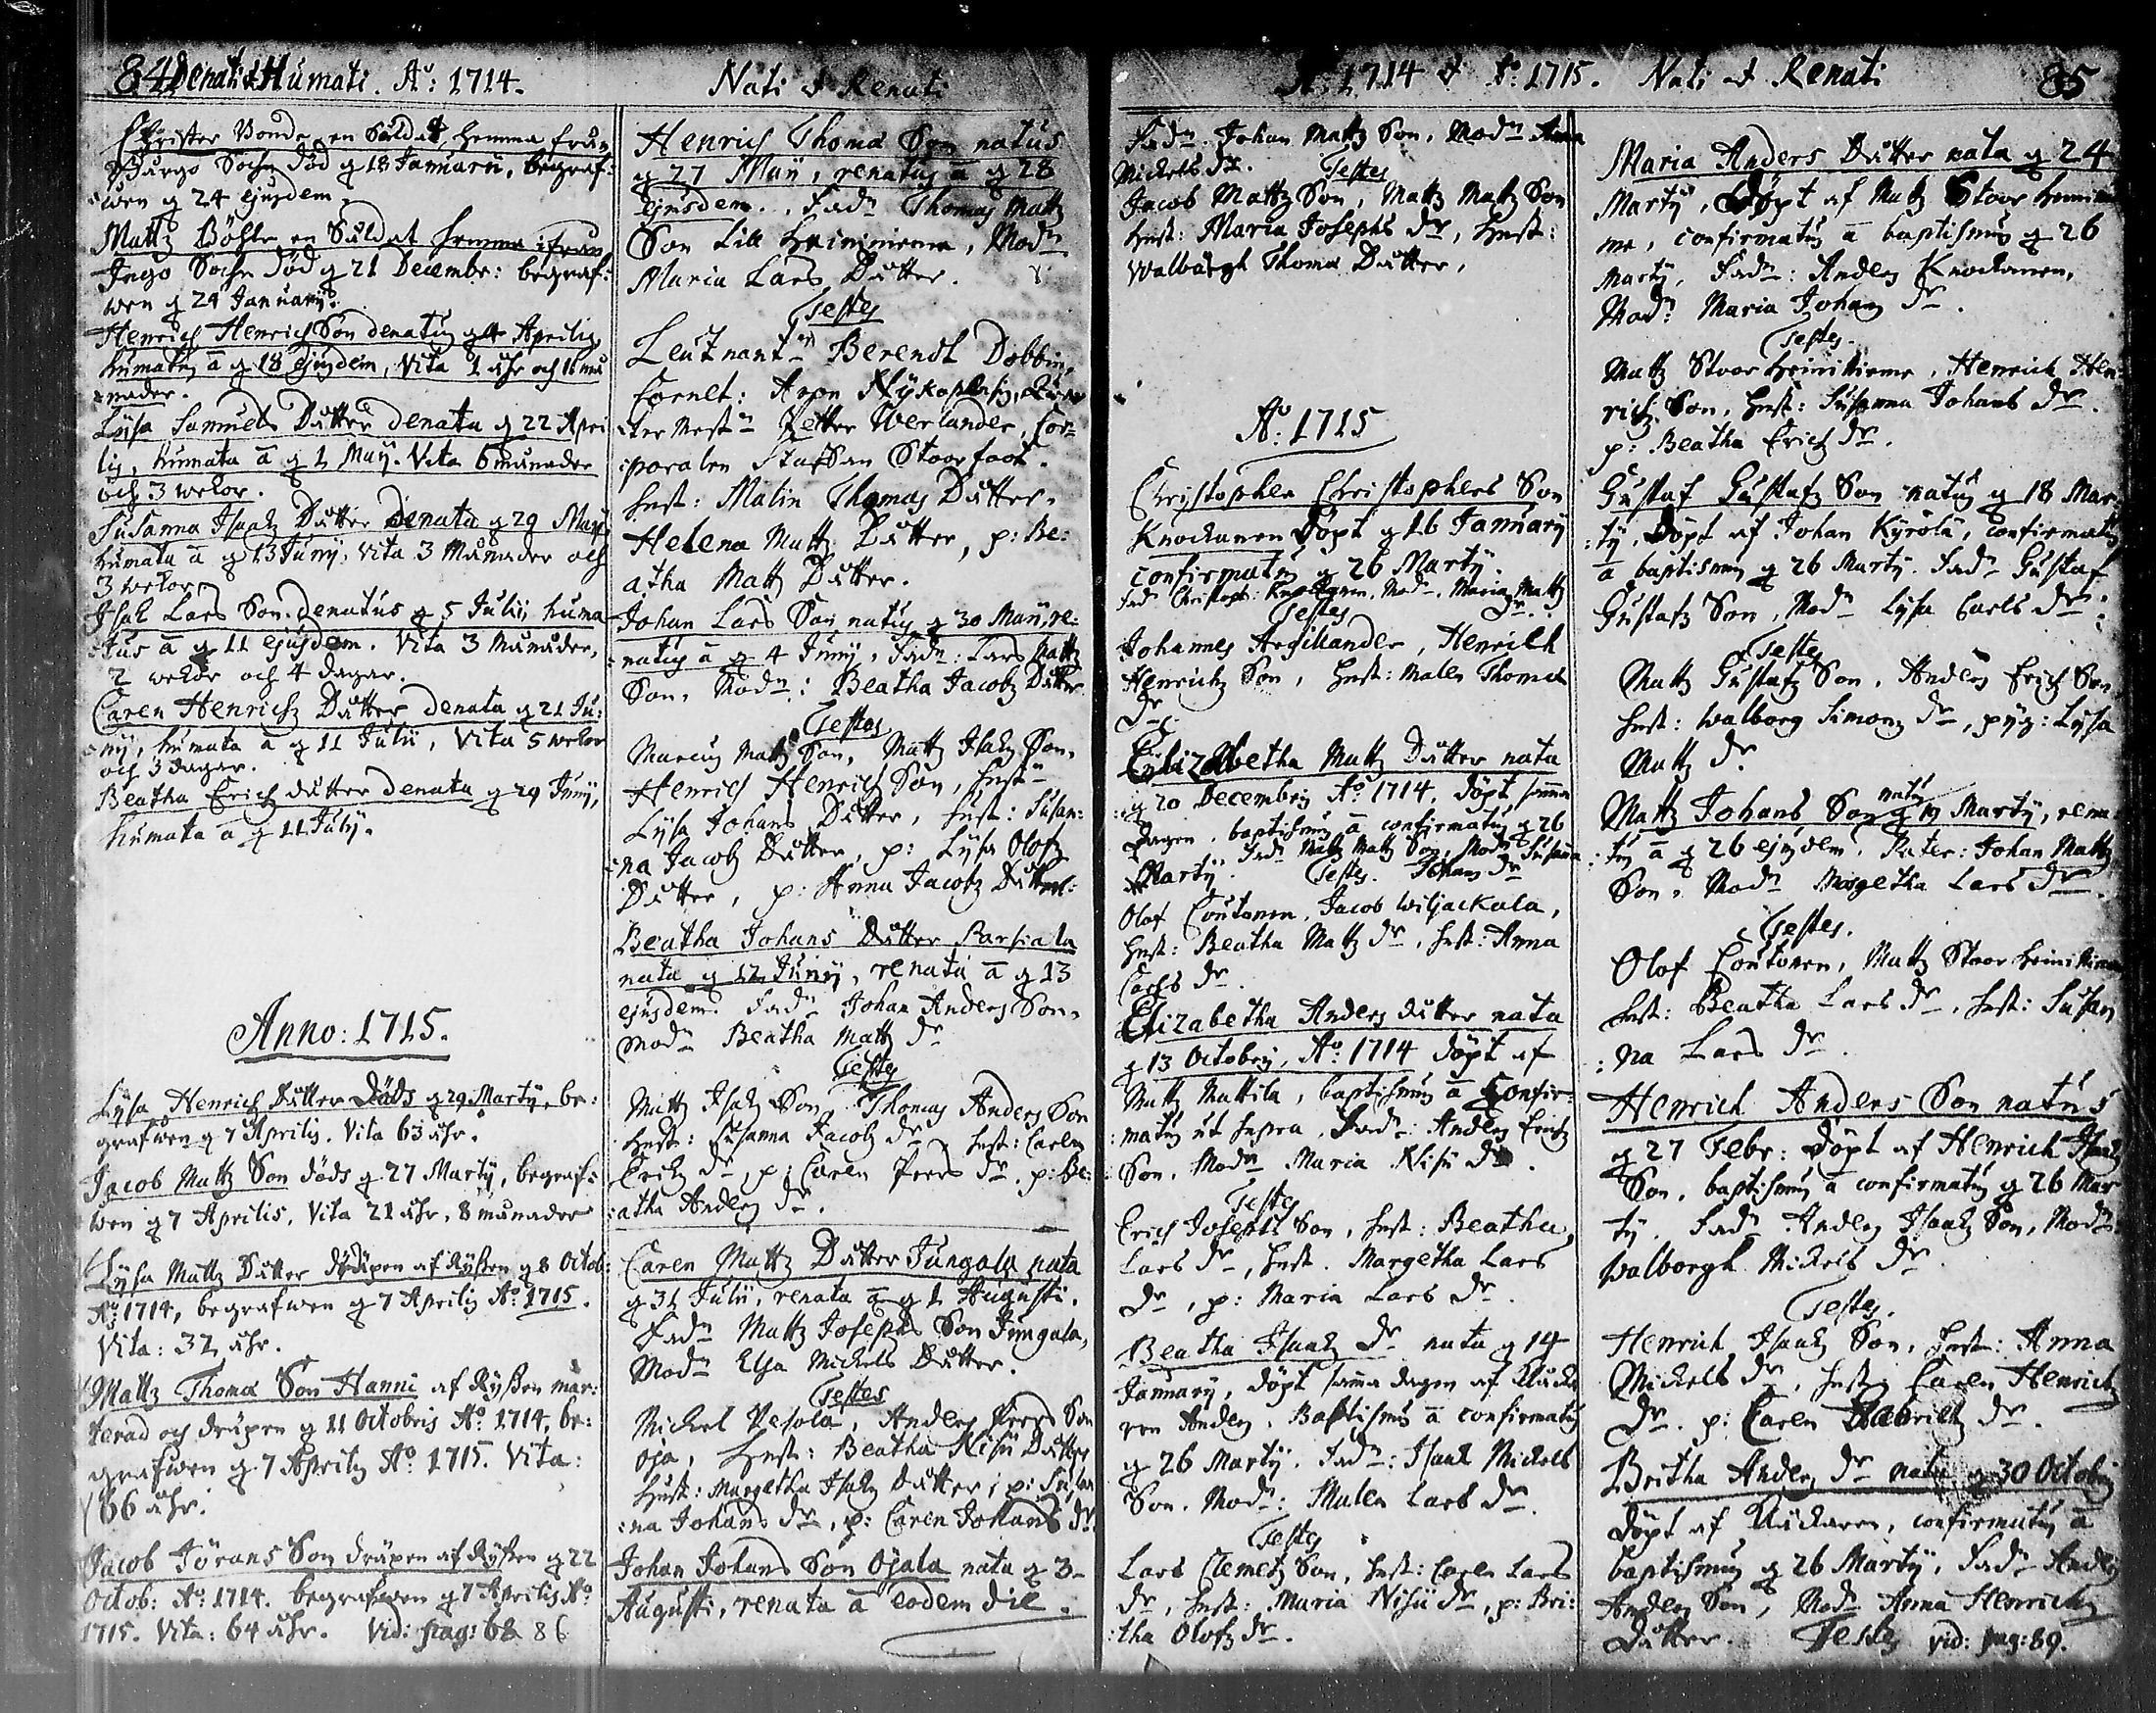 84 Denati & Humati. A°: 1714.
Christer Bonde en Såldat, hemma från
Wårgo Sochn död g 18 Januarii, begraf:
wen g 24 ejusdem.
Mattz Böhle en Såldat hemma ifrån
Ingo Sochn död g 21 Decembr: begraf:
wen g 24 January.
Henrich Henrichson denatus g 4 Aprilis,
humatus a g 18 ejusdem, Vita 1 åhr och 16 må
nader.
Lysa Samuels Dåtter denata g 22 Apri
lis, humata a g 1 Maij. Vita 6 månader
och 3 wekor.
Susanna Isaahz Dåtter denata g 29 Maij,
humata a g 13 Junij, Vita 3 Månader och
3 wekor.
Isak Lars Son. denatus g 5 Julii, huma
tus a g 11 ejusdem. Vita 3 Månader,
2 wekor och 4 dagar.
Caren Henrichz Dåtter denata g 21 Ju:
nij, humata a g 11 Julii, Vita 5 wekor
och 3 dagar.
Beatha Erichz dåtter denata g 29 Junij,
humata a g 11 July.
Anno: 1715.
Lysa Henrichz Dåtter Döds g 29 Martij, be:
grafwen g 7 Aprilis. Vita 63 åhr.
Jacob Mattz Son döds g 27 Martij, begraf:
wen g 7 Aprilis, Vita 21 åhr, 8 månader
Lysa Mattz Dåtter dräpen af Ryssen g 8 Octob:
A°: 1714, begrafwen g 7 Aprilis A°: 1715.
Vita: 32 åhr.
Mattz Thomæ Son Hanni af Ryssen mar:
terad och dräpen g 11 Octobris A°. 1714, be:
grafwen g 7 Aprilis A°. 1715. Vita:
66 åhr.
Jacob Jörans Son dräpen af Ryssen g 22
Octob: A°: 1714. begrafwen g 7 Aprilis A°
1715. Vita: 64 åhr. Vid: pag: 68 86
Nati & Renati
Henrich Thomæ Son natus
g 27 Maij, renatus a g 28
ejusdem. Fadn Thomas Mattz
Son Lill Heininiemi, Modn
Maria Lars Dåtter.
Testes
Leutnant: Berendt Dobbin,
Cornet: Aron Nykopensis,
ter Mestn Petter Werlander, Cor:
poralen Staffan Stoorfoot.
Hust: Malin Thomas Dåtter,
Helena Mattz Dåtter, p: Be:
atha Mattz Dåtter.
Johan Lars Son natus g 30 Maij, re:
natus a g 4 Junij, Fadn: Lars Mattz
Son, Modn: Beatha Jacobz Dåtter
Testes
Marcus Mattz Son, Mattz Isahz Son,
Henrich Henrich Son, Hustn
Lysa Johans Dåtter, Hust: Susan:
na Jacobz Dåtter, p: Lysa Olofz
Dåtter, p: Anna Jacobz Dåtter.
Beatha Johans Dåtter Parsiala
nata g 12 Junij, renata a g 13
ejusdem. Fadn Johan Anders Son,
Modn Beatha Mattz Dr
Testes
Mattz Isahz Son Thomas Anders Son
Hust: Susanna Jacobz Dr, Hust: Caren
Erichz Dr, p: Caren Peers Dr, p: Be:
atha Anders Dr.
Caren Mattz Dåtter Jungala nata
g 31 Julii, renata a g 1 Augusti.
Fadn Mattz Josephs Son Jungala,
Modn Elsa Mickels Dåtter.
Testes
Mickel Vesola, Anders Peers Son
Oja, Hust: Beatha Nisii Dåtter
Hust: Margetha Isahz Dåtter, p: Susan
na Johans Dr, p: Caren Johans Dr.
Johan Johans Son Ojala nata g 3
Augusti, renata a eodem die.
A°: 1714 & A°: 1715. Nati & Renati 85
Fadn Johan Mattz Son, Modn Anna
Mickels Dr. Testes
Jacob Mattz Son, Mattz Mattz Son
Hust: Maria Josephs Dr, Hust:
Walbårgh Thomæ Dåtter,
A°: 1715
Christopher Christophers Son
Knockanen Döpt g 16 January
confirmatus g 26 Martij.
Fadn Christoph: Knockanen, Modn. Maria Mattz
Testes Dr.
Johannes Argillander, Henrich
Henrichz Son, Hust: Malen Thomæ
Dr.
Elizabetha Mattz Dåtter nata
g 20 Decembris A°: 1714, Döpt samma
dagen, baptismus a confirmatus g 26
Martij. Fadn Mattz Mattz Son, Modn Susanna
Testes. Johans Dr
Olof Coutonen, Jacob Wiljackala,
Hust: Beatha Mattz Dr, Hust: Anna
Carls Dr.
Elizabetha Anders dåtter nata
g 13 Octobris, A°: 1714 döpt af
Mattz Mattila, baptismus a Confir:
matus ut supra, Fadn: Anders Erichz
Son, Modn Maria Nisii Dr.
Testes
Erich Josephs Son, Hust: Beatha
Lars Dr, Hust. Margetha Lars
Dr, p: Maria Lars Dr.
Beatha Isaahz Dr nata g 14
January, döpt samma dagen af Klåcka
ren Anders. Baptismus a confirmatus
g 26 Martij. Fadn: Isaac Mickels
Son. Modn: Malen Lars Dr.
Testes
Lars Clemetz Son, Hust: Caren Lars
Dr, Hust: Maria Nisii Dr, p: Bri:
tha Olofz Dr.
Maria Anders Dåtter nata g 24
Martij, Döpt af Mattz Stoor heinnie
me, confirmatus a baptismus g 26
Martij, Fadn: Anders Knockanen,
Modn: Maria Johans Dr.
Testes.
Mattz Stoor heininiemi, Henrich Hen
richz Son, Hust: Susanna Johans Dr.
p: Beatha Erichz Dr.
Gustaf Gustafz Son natus g 18 Mar:
tij, Döpt af Johan Kyrölä, confirmatus
a baptismus g 26 Martij. Fadn Gustaf
Gustafz Son, Modn Lysa Carls Dr.
Testes
Mattz Gustafz Son, Anders Erichz Son
Hust: Walborg Simons Dr, pyg: Lysa
Mattz Dr
Mattz Johans Son natus g 19 Martij, rena
tus a g 26 ejusdem. Pater: Johan Mattz
Son, Modn Margetha Lars Dr.
Testes.
Olof Coutonen, Mattz Stoor heininiemi
Hust: Beatha Lars Dr, Hust: Susan
na Lars Dr.
Henrich Anders Son natus
g 27 Febr: Döpt af Henrich Isaahz
Son, baptismus a confirmatus g 26 Mar
tij. Fadn Anders Isaahz Son, Modn:
Walborgh Mickels Dr
Testes.
Henrich Isaahz Son, Hust: Anna
Mickels Dr, Hust: Caren Henrichz
Dr. p: Caren Dr.
Britha Anders Dr nata g 30 Octobris
Döpt af Klåckaren, confirmatus a
baptismus g 26 Martij, Fadn Anders
Anders Son, Modn Anna Henrichz
Dåtter. Testes vid: pag: 89.